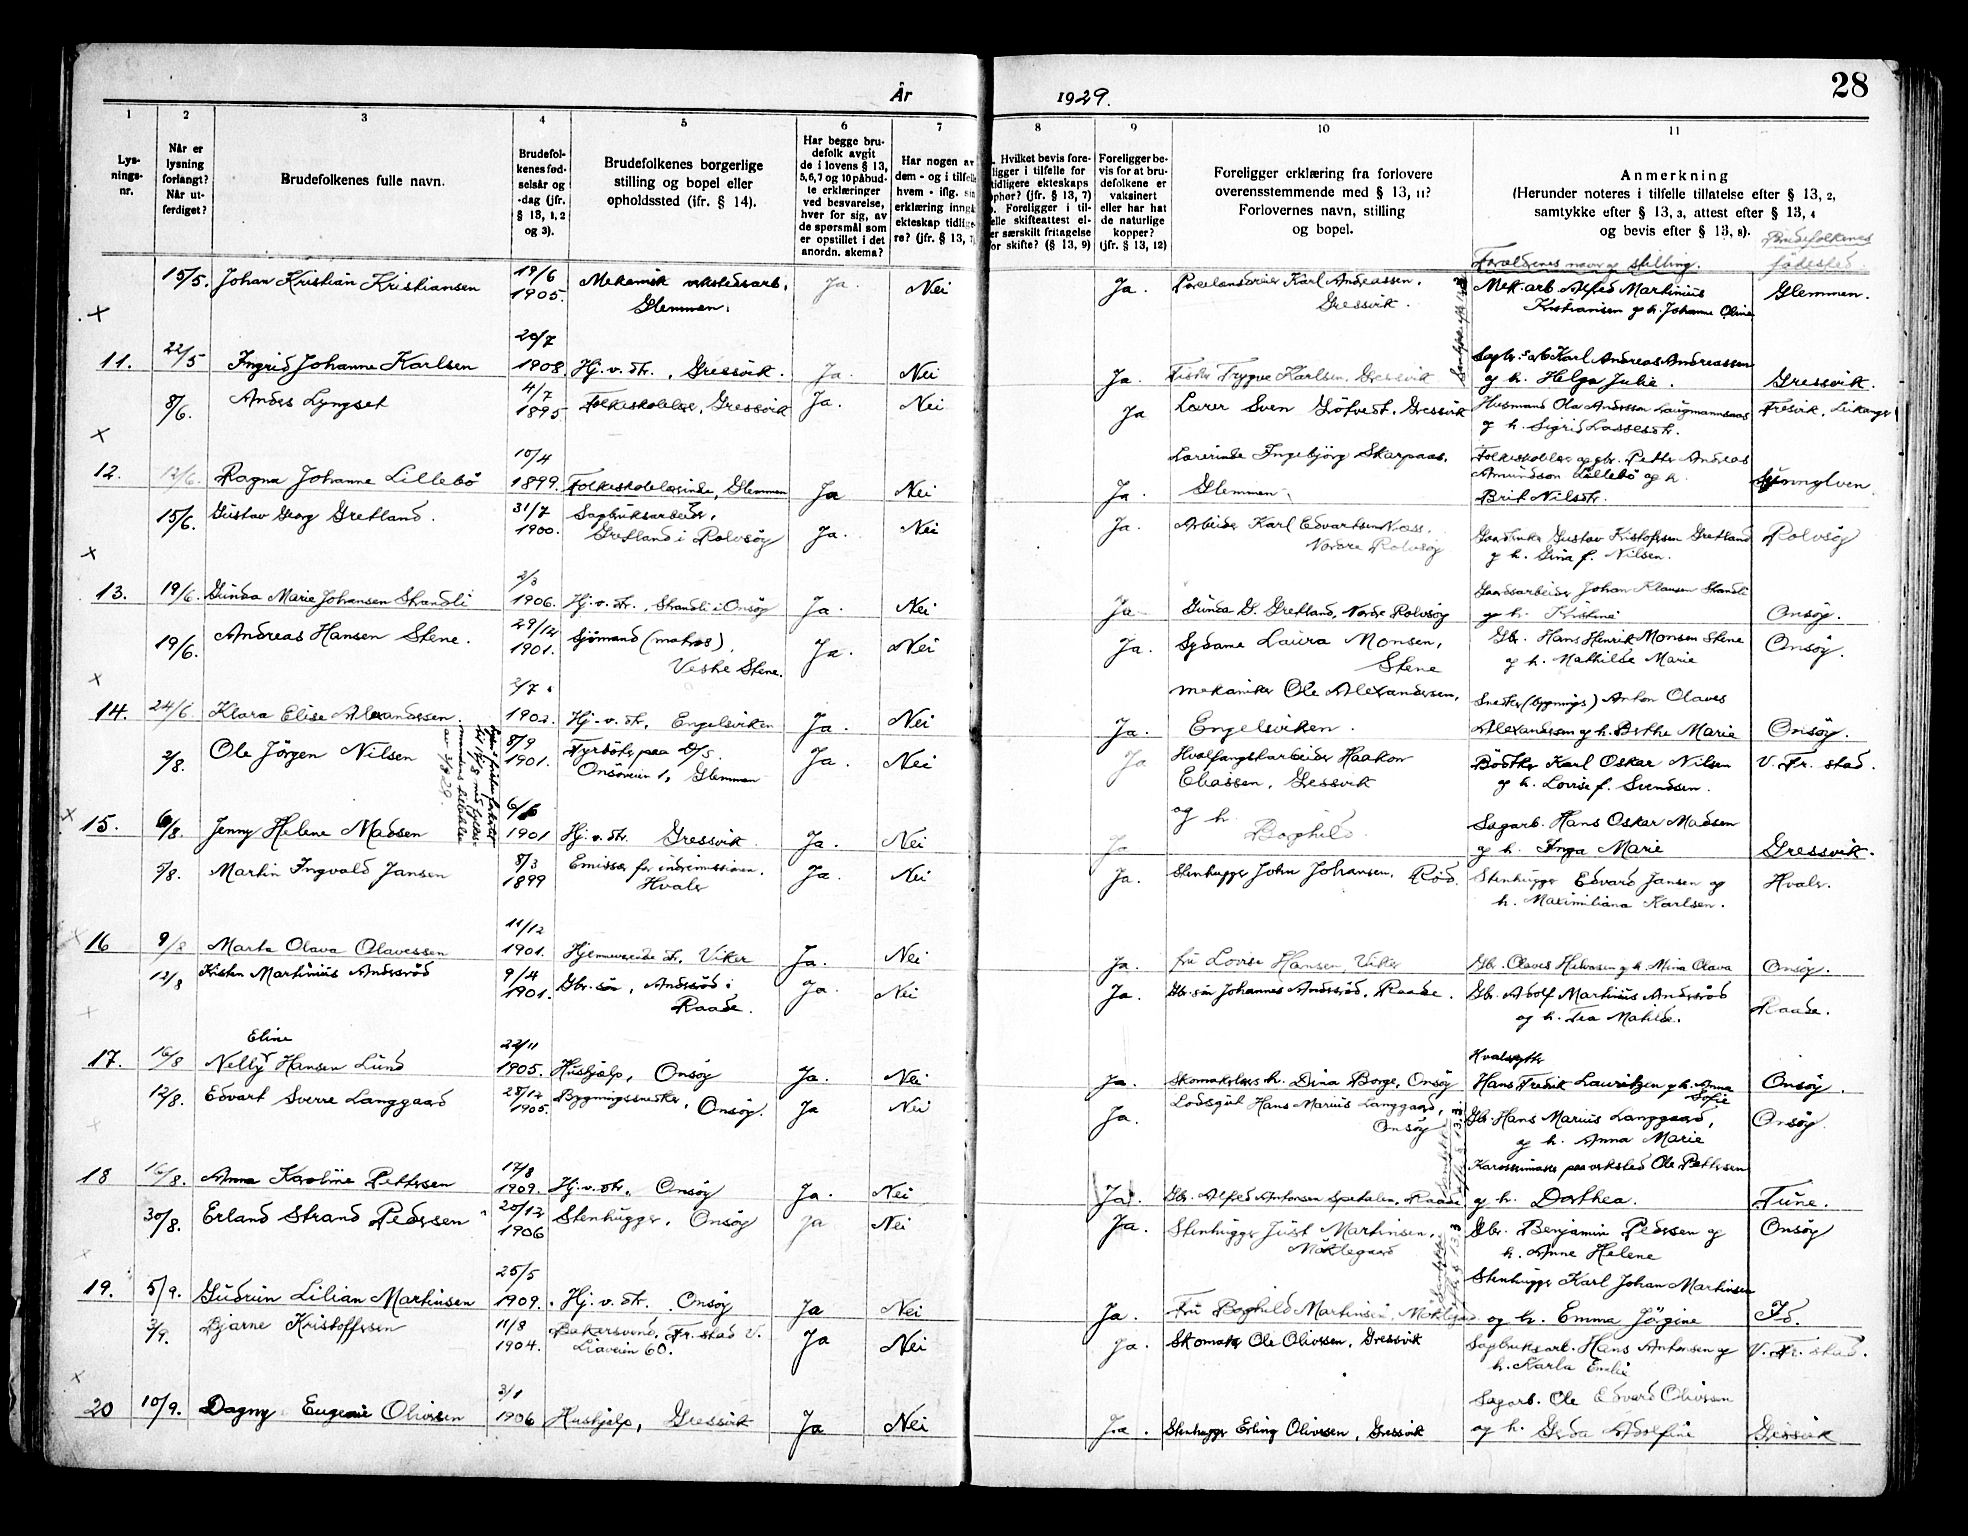 År 1929.
28
1 2 3 4 5 6 7 8 9 10 11
Lys-
nings-
nr.
Når er
lysning
forlangt?
Når ut-
ferdiget?
Brudefolkenes fulle navn.
Brudefol-
kenes fød-
selsår og
-dag (jfr.
§ 13, 1, 2
og 3).
Brudefolkenes borgerlige
stilling og bopel eller
opholdssted (ifr. § 14).
Har begge bru-
defolk avgit
de i lovens § 13,
5, 6, 7 og 10 påbud-
te erklæringer
ved besvarelse,
hver for sig, av
de spørsmål som
er opstillet i det
anordn. skema?
Har nogen av
dem - og i tilfelle
hvem - iflg. sin
erklæring inngå
ekteskap tidlige-
re? (jfr. § 13, 7)
. Hvilket bevis fore-
ligger i tilfelle for
tidligere ekteskaps
ophør? (jfr. § 13, 7)
. Foreligger i til-
elle skifteattest el-
er særskilt fritagelse
for skifte? (§ 13, 9)
Foreligger be-
vis for at bru-
defolkene er
vaksinert
eller har hat
de naturlige
kopper?
(jfr. § 13, 12)
Foreligger erklæring fra forlovere
overensstemmende med § 13, 11?
Forlovernes navn, stilling
og bopel.
Anmerkning
(Herunder noteres i tilfelle tillatelse efter § 13, 2,
samtykke efter § 13, 3, attest efter § 13, 4
og bevis efter § 13, 8).
Forældrenes navn og stilling.
Brudefolkenes
fødested.
15/5. Johan Kristian Kristiansen 19/6 1905. Mekanisk verkstedsarb. Glemmen. Ja. Nei Ja. Porcelænsdreier Karl Andreassen, Gressvik. Mek.arb Alfred Martinius Kristiansen og h. Johanne Oline Glemmen.
11. 22/5 Ingrid Johanne Karlsen 20/7 1908. Hj.v. dtr., Gressvik. Ja. Nei Ja. Fisker Trygve Karlsen, Gressvik Sagbr.arb Karl Andreas Andreassen og h. Helga Julie. Gressvik.
8/6. Anders Lyngset 4/7 1895 Folkeskolelær, Gressvik Ja. Nei Ja Lærer Sven Götvedt, Gressvik Husmand Ola Andersen og h. Sigrid Lassesdtr. Fresvik, Leikanger
12. 12/6. Ragna Johanne Lillebö 10/4 1899. Folkeskolelærerinde, Glemmen Ja Nei Ja. Lærerinde Ingebjörg Skarpaas, Glemmen. Folkeskolelær og gbr. Petter Andreas Amundson Lillebö og h. Brit Nilsdtr. Sunnylven
15/6. Gustav Georg Gretland. 31/7 1900. Sagbruksarbeider, Gretland i Rolvsöy Ja. Nei Ja. Arbeider Karl Edvartsen Næss. Nordre Rolvsöy Gustav Kristofssen Gretland og h. Gina f. Nilsen. Rolvsöy
13. 19/6. Gunda Marie Johansen Strandli 2/3 1906. Hj.v.dtr., Strandli i Onsöy Ja. Nei Ja. Gunda G. Gretland, Nordre Rolvsöy Gaardsarbeider Johan Klausen Strandli og h. Kristine Onsöy.
19/6. Andreas Hansen Stene. 29/12 1901. Sjömand (matros), Vestre Stene. Ja. Nei Ja. Sydame Laura Monsen, Stene Gbr. Hans Henrik Monsen Stene og h. Mathilde Marie Onsöy.
14. 24/6 Klara Elise Alexandersen. 2/7 1902. Hj.v.dtr, Engelsviken Ja. Nei Ja. Mekaniker Ole Alexandersen, Engelsviken. Snedker (bygnings) Anton Olaves Alexandersen og h. Berthe Marie Onsöy.
2/8. Ole Jörgen Nilsen 8/9 1901. Fyrböter paa D/S. Onsöveien 1, Glemmen Ja. Nei Ja Hvalfangstarbeider Haakon Eliassen, Gressvik Bödker Karl Oskar Nilsen og h. Lovise f. Svendsen. V. Fr. stad.
15. 6/8. Jenny Helene Madsen 6/6 1901 Hj.v.dtr. Gressvik. Ja. Nei Ja og h. Borghild. Sagarb. Hans Oskar Madsen og h. Inga Marie Gressvik.
5/8. Martin Ingvald Jansen 8/3 1899 Emissær for indremissionen. Hvaler Ja. Nei Ja. Stenhugger John Johansen, Röd. Stenhugger Edvard Jansen og h. Maximiliana Karlsen. Hvaler.
16 9/8 Marta Olava Olavessen 11/12 1901. Hjemmeværende dtr, Viker Ja. Nei Ja. fru Lovise Hansen, Viker Gbr. Olaves Helvasen og h. Mina Olava Onsöy.
12/8 Kristen Martinius Andersröd 9/4 1901. Gbr.sön, Andersröd i Raade. Ja. Nei Ja. Gbr.sön Johannes Andersröd, Raade. Gbr. Adolf Martinius Andersröd og h. Tea Matilde. Raade.
17. 16/8 Nelly Eline Hansen Lund 22/11 1905. Hushjelp, Onsöy Ja. Nei Ja. Skomakers h. Dina Borge, Onsöy Hvalskytter Hans Fredrik Lauritzen og h. Anna Sofie Onsöy.
12/8. Edvart Sverre Langgaard 28/12 1905. Bygningssnedker, Onsöy. Ja Nei Ja. Lodsgut Hans Marius Langgaard, Onsöy Gbr. Hans Marius Langgaard, og h. Anna Marie Onsöy.
18 16/8. Anna Karoline Pettersen 17/8 1909. Hj.v.dtr. Onsöy Ja. Nei Ja. Gbr. Alfred Antonsen Spetalen, Raade Karosserimaker paa verksted Ole Pettersen og h. Dorthea. Tune.
30/8. Erland Strand Pedersen 20/12 1906 Stenhugger, Onsöy Ja Nei Ja. Stenhugger Just Martinsen, Möklegaard Gbr. Benjamin Pedersen og h. Anne Helene Onsöy
19. 5/9. Gudrun Lilian Martinsen 25/5 1909. Hj.v.dtr. Onsöy Ja Nei Ja. Fru Borghild Martinsen, Möklegaard Stenhugger Karl Johan Martinsen og h. Emma Jörgine Id.
3/9. Bjarne Kristoffersen 11/8 1904. Bakersvend, Fr.stad V. Liaveien 60. Ja Nei Ja. Skomaker Ole Olivsen, Gressvik Sagbruksarb. Hans Antonsen og h. Karla Emelie V. Fr. stad.
20 10/9. Dagny Eugenie Olivsen 3/1 1906 Hushjelp, Gressvik Ja Nei Ja. Stenhugger Erling Olivesen, Gressvik Sagarb. Ole Edvard Olivsen og h. Gerda Adolfine Gressvik